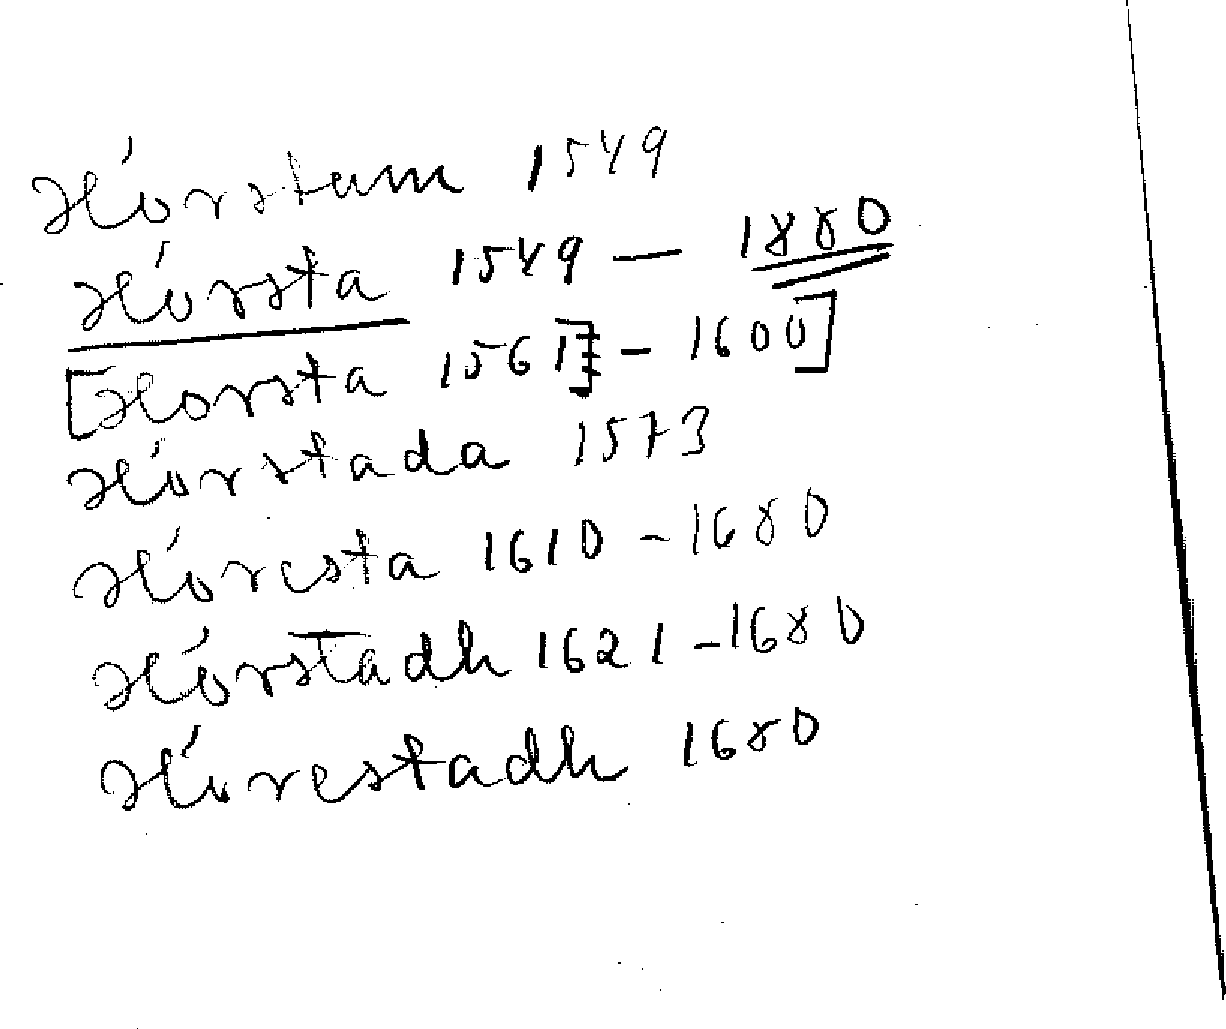 Hórstum 1549
Hórsta 1549 — 1880
[Horsta 1561] - 1600]
Hórstada 1573
Hóresta 1610 - 1680
Hórstadh 1621 - 1680
Hórestadh 1680